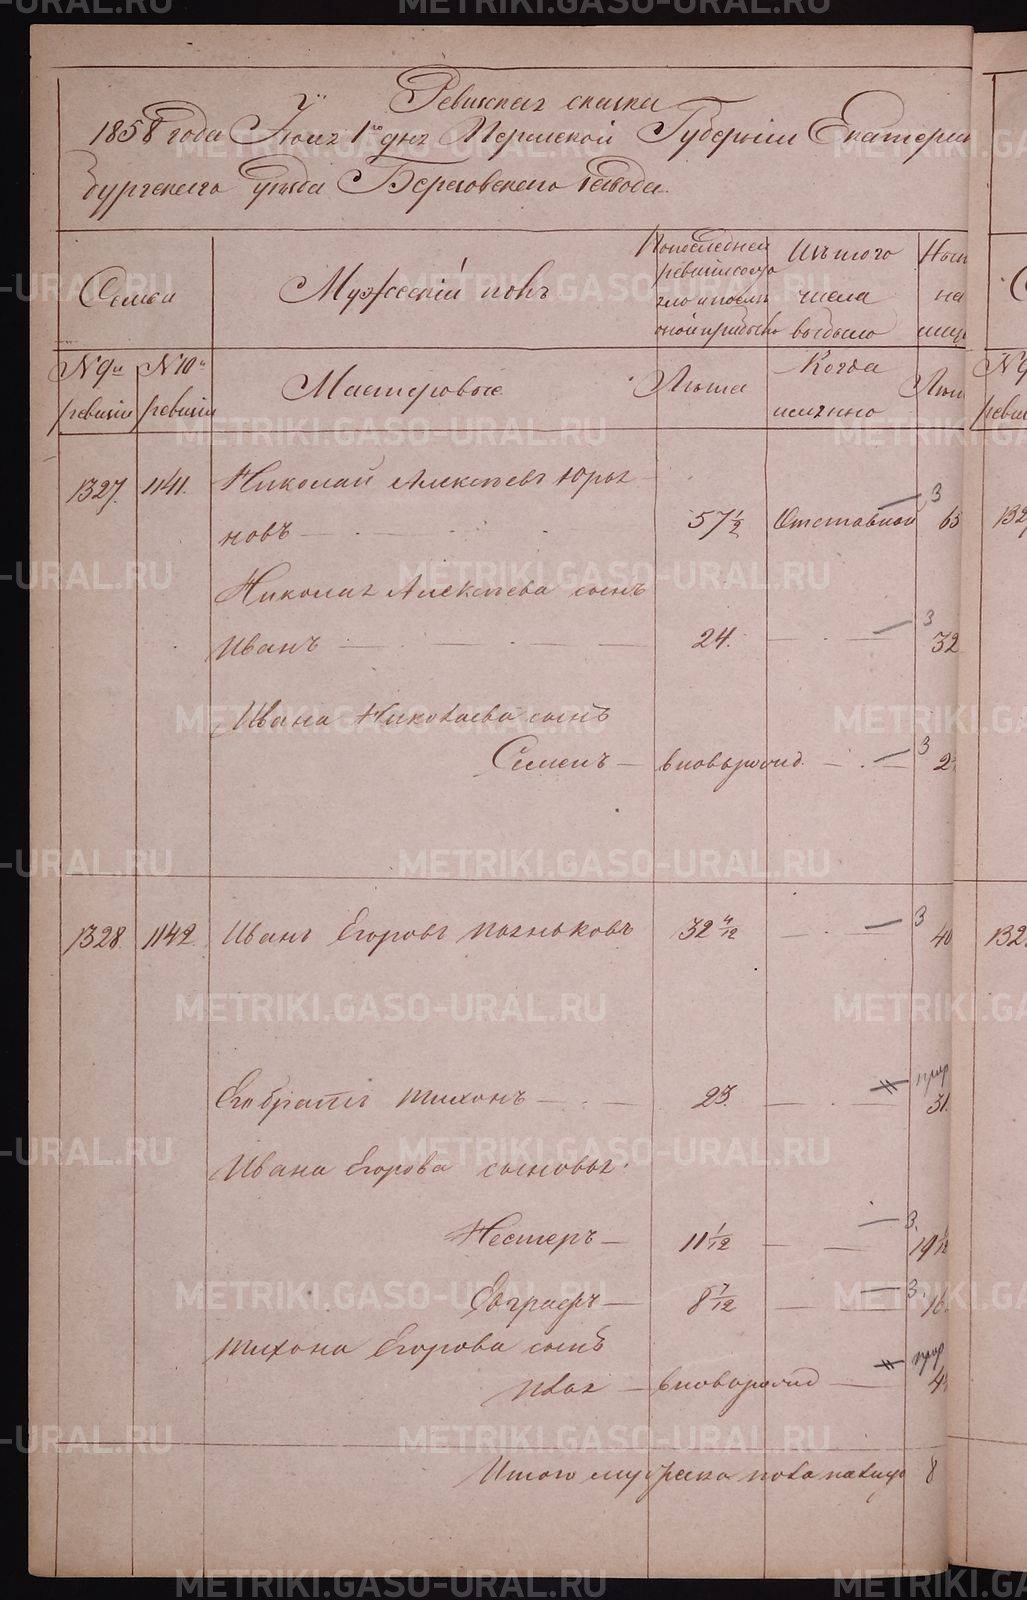 Ревизская сказка
1858 года Июня 1го дня Пермской Губернии Екатерин
бургскаго уезда Березовскаго завода.
Семьи
Мужескій полъ
По последней ревизіи состо
яло и после
оной прибыло
Изъ того числа выбыло
Ныне на лицо
№ 9й ревизіи
№ 10й ревизіи
Мастеровые
Лета
Когда именно
Лета
1327. 1141. Николай Алексеевъ Юрья
новъ 57 1/2 Отставной 3 65
Николая Алексеева сынъ
Иванъ 24. 3 32
Ивана Николаева сынъ
Семенъ вноворожд. 3 2
1328 1142 Иванъ Егоровъ Позняковъ 32 4/12 3 40
Его братъ Тихонъ 23. 31.
Ивана Егорова сыновья:
Нестеръ 11 1/12 3. 19 1/12
Евграфъ 8 7/12 3. 16.
Тихона Егорова сынъ
вноворожд 4
Итого мужеска пола налицо 8
METRIKI.GASO-URAL.RU